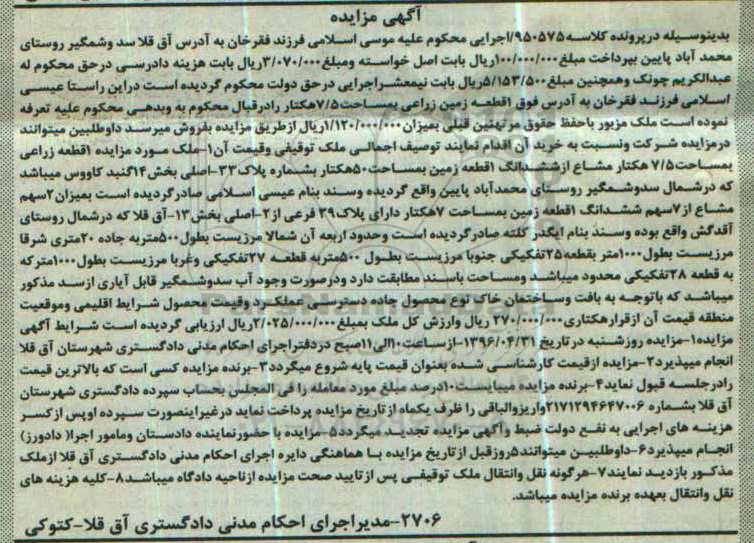 آگهی مزایده
بدینوسیله درپرونده کلاسه۹۵۰۵۷۵/اجرایی محکوم علیه موسی اسلامی فرزند فقرخان به آدرس آق قلا سد وشمگیر روستای
محمد آباد پایین بپرداخت مبلغ۱۰۰/۰۰۰/۰۰۰ریال بابت اصل خواسته ومبلغ۳/۰۷۰/۰۰۰ریال بابت هزینه دادرسی درحق محکوم له
عبدالکریم چونک وهمچنین مبلغ۵/۱۵۳/۵۰۰ریال بابت نیمعشراجرایی درحق دولت محکوم گردیده است دراین راستا عیسی
اسلامی فرزند فقرخان به آدرس فوق ۱قطعه زمین زراعی بمساحت۷/۵هکتار رادرقبال محکوم به وبدهی محکوم علیه تعرفه
نموده است ملک مزبور باحفظ حقوق مرتهنین قبلی بمیزان۱/۱۲۰/۰۰۰/۰۰۰ریال ازطریق مزایده بفروش میرسد داوطلبین میتوانند
درمزایده شرکت ونسبت به خرید آن اقدام نمایند توصیف اجمالی ملک توقیفی وقیمت آن۱-ملک مورد مزایده ۱قطعه زراعی
بمساحت۷/۵ هکتار مشاع ازششدانگ ۱قطعه زمین بمساحت۵۰هکتار بشماره پلاک۳۳-اصلی بخش۱۴گنبد کاووس میباشد
که درشمال سدوشمگیر روستای محمدآباد پایین واقع گردیده وسند بنام عیسی اسلامی صادرگردیده است بمیزان۲سهم
مشاع از۷سهم ششدانگ ۱قطعه زمین بمساحت ۷هکتار دارای پلاک۳۹ فرعی از۲-اصلی بخش۱۳-آق قلا که درشمال روستای
آقدگش واقع بوده وسند بنام ایگدر کلته صادرگردیده است وحدود اربعه آن شمالا مرزیست بطول۵۰۰متربه جاده ۲۰متری شرقا
مرزیست بطول۱۰۰۰متر بقطعه۲۵تفکیکی جنوبا مرزیست بطول ۵۰۰متربه قطعه ۲۷تفکیکی وغربا مرزیست بطول۱۰۰۰مترکه
به قطعه ۲۸تفکیکی محدود میباشد ومساحت باسند مطابقت دارد ودرصورت وجود آب سدوشمگیر قابل آبیاری ازسد مذکور
میباشد که باتوجه به بافت وساختمان خاک نوع محصول جاده دسترسی عملکرد وقیمت محصول شرایط اقلیمی وموقعیت
منطقه قیمت آن ازقرارهکتاری۲۷۰/۰۰۰/۰۰۰ ریال وارزش کل ملک بمبلغ۲/۰۲۵/۰۰۰/۰۰۰ریال ارزیابی گردیده است شرایط آگهی
مزایده۱-مزایده روزشنبه درتاریخ ۱۳۹۶/۰۴/۳۱-ازساعت۱۰الی۱۱صبح دردفتراجرای احکام مدنی دادگستری شهرستان آق قلا
انجام میپذیرد۲-مزایده ازقیمت کارشناسی شده بعنوان قیمت پایه شروع میگردد۳-برنده مزایده کسی است که بالاترین قیمت
رادرجلسه قبول نماید۴-برنده مزایده میبایست۱۰درصد مبلغ مورد معامله را فی المجلس بحساب سپرده دادگستری شهرستان
آق قلا بشماره ۲۱۷۱۲۹۴۶۴۷۰۰۶واریزوالباقی را ظرف یکماه ازتاریخ مزایده پرداخت نماید درغیراینصورت سپرده اوپس ازکسر
هزینه های اجرایی به نفع دولت ضبط وآگهی مزایده تجدید میگردد۵-مزایده با حضورنماینده دادستان ومامور اجرا( دادورز)
انجام میپذیرد۶-داوطلبین میتوانند۵روزقبل ازتاریخ مزایده با هماهنگی دایره اجرای احکام مدنی دادگستری آق قلا ازملک
مذکور بازدید نمایند۷-هرگونه نقل وانتقال ملک توقیفی پس ازتایید صحت مزایده ازناحیه دادگاه میباشد۸-کلیه هزینه های
نقل وانتقال بعهده برنده مزایده میباشد.
۲۷۰۶-مدیراجرای احکام مدنی دادگستری آق قلا-کتوکی